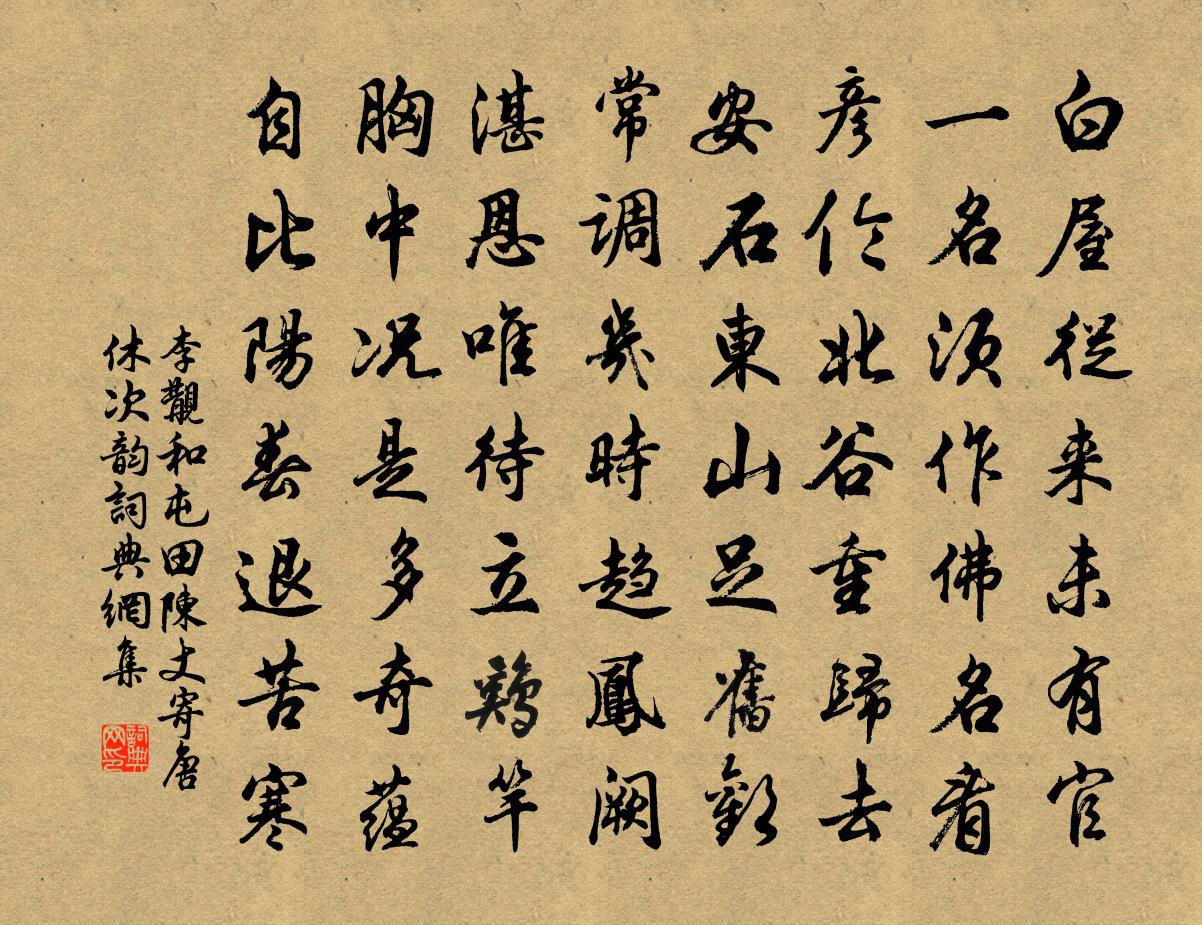 白屋從来未有官
一名須作佛名看
彦伦北谷重歸去
安石東山足舊歡
常調幾時趋鳳阙
湛恩唯待立鷄竿
胸中况是多奇蕴
自比陽春退苦寒
李覯和屯田陳丈寄唐
休次韵詞典網集
詞典网印